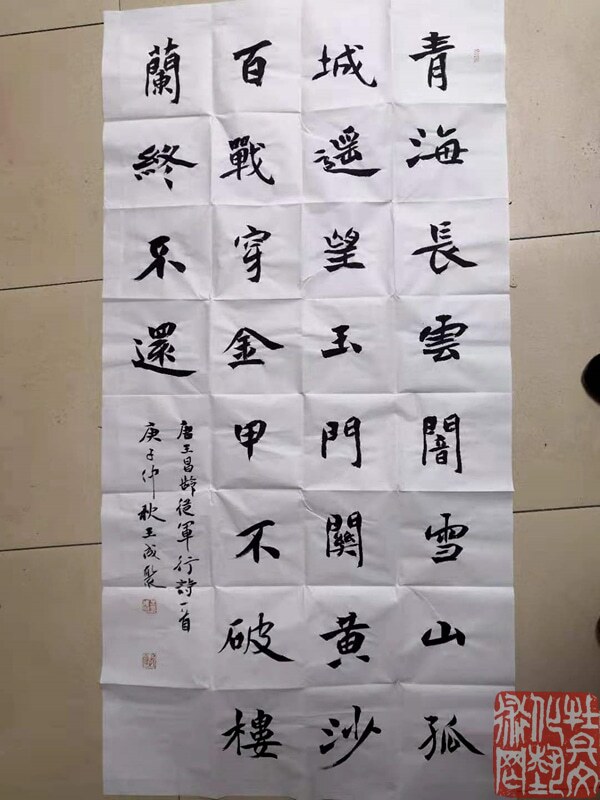 青海長雲闇雪山孤
城遥望玉門關黄沙
百戰穿金甲不破樓
蘭終不還
唐王昌齡從軍行詩一首
庚子仲秋王成